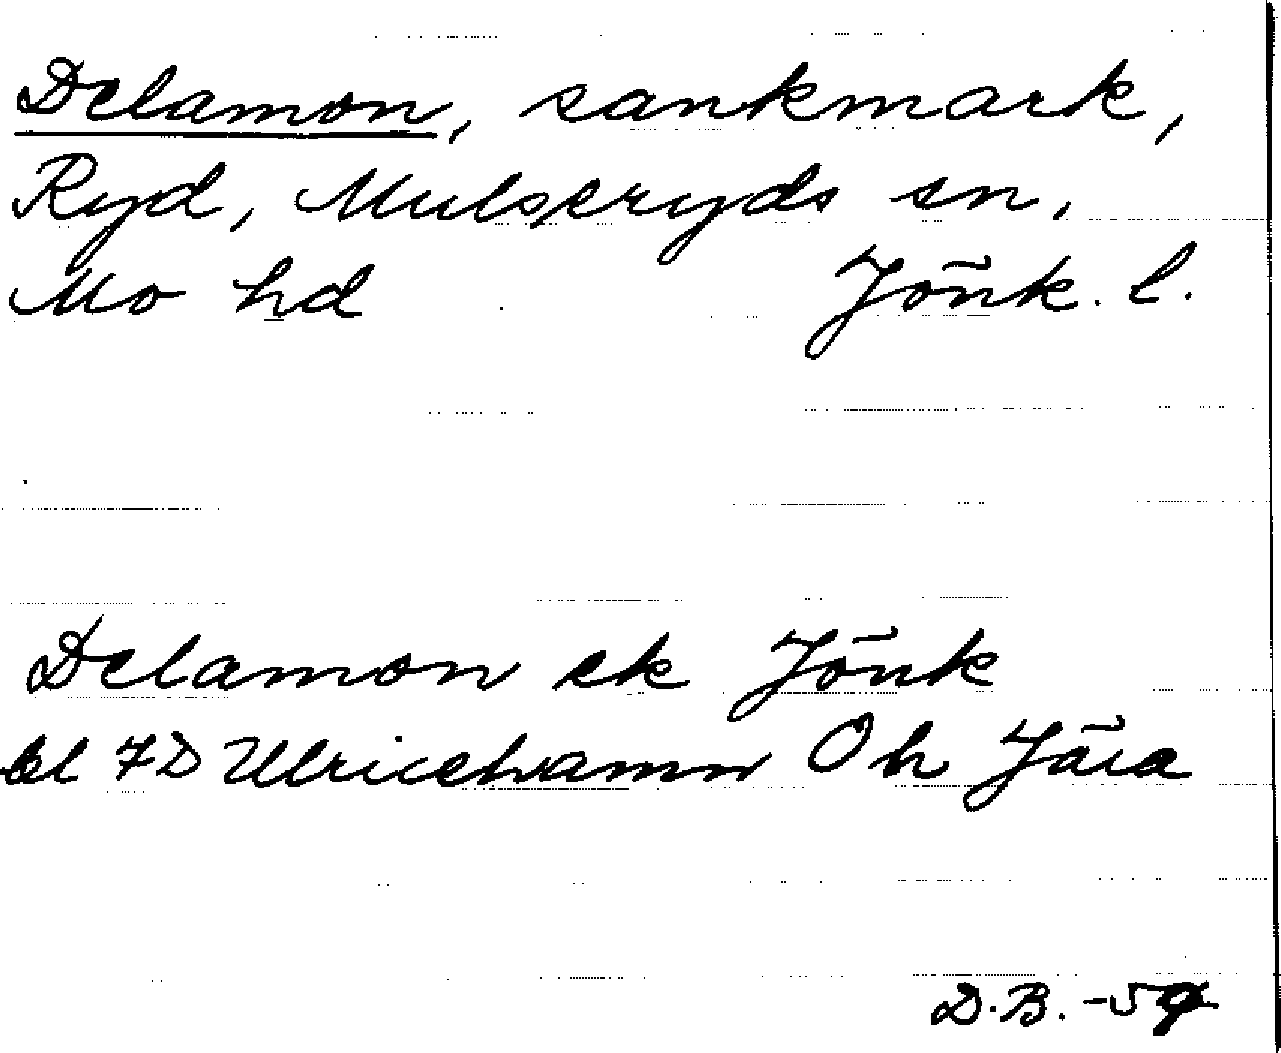 Delamon, sankmark,
Ryd, Mulseryds sn,
Mo hd Jönk. l.
Delamon ek Jönk
bl 7D Ulricehamn Oh Jära
D.B. -59